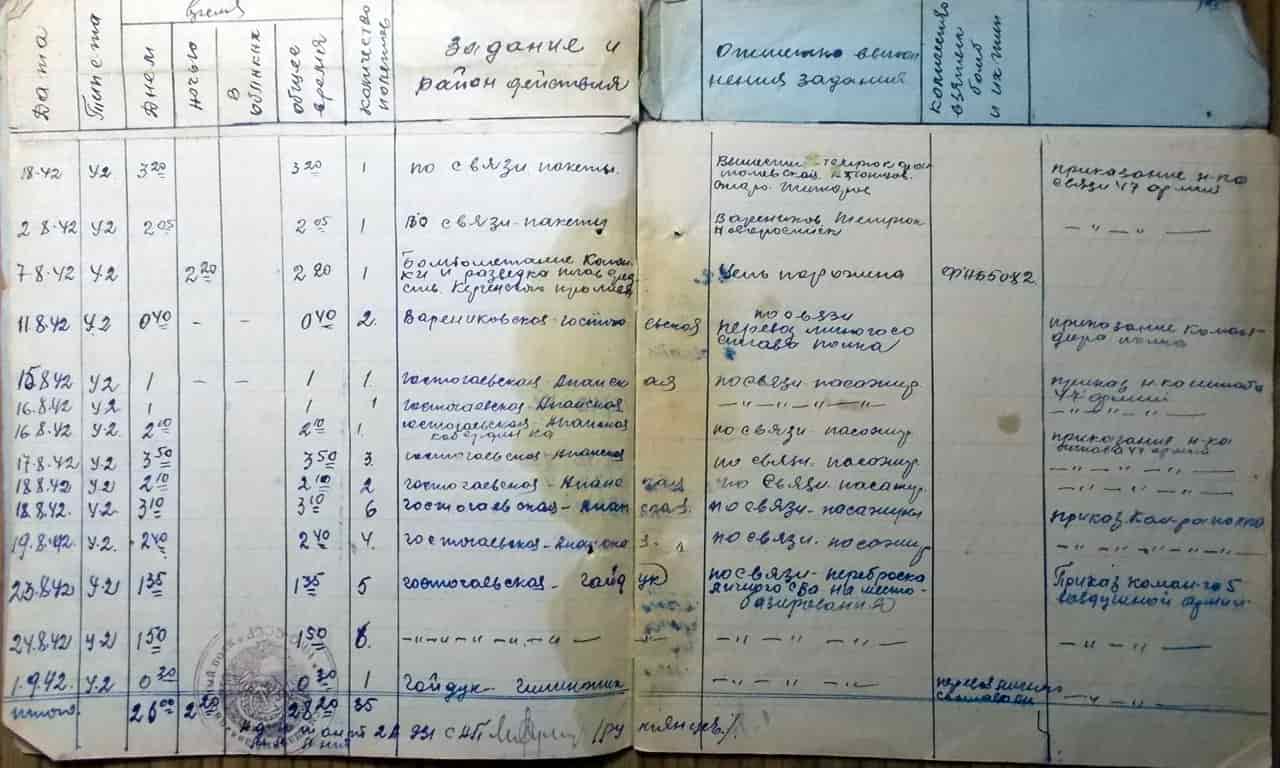 время
Дата Типс-та Днем ночью в облаках общее время количество полетов Задание и район действия Отметка выпол нения задания количество взятых бомб и их тип
18.42 У2 3 20 3 20 1 по связи пакеты. приказание н-ка связи 47 армии
2.8.42 У2 2 05 2 05 1 по связи-пакеты Вареников. Темрюк Новороссийск — " — " —
7.8.42 У2 2 20 2 20 1 Бомбометание и разведка плав. сред ств. Керченского пролива Цель поражена ФАБ50х2.
11.8.42 У.2 0 40 - - 0 40 2. Варениковская-гостага евская по связи перевоз личного со става полка приказание коман- дира полка
15.8.42 У2 1 - - 1 1 гостогаевская-Анапск ая по связи пасажир. приказ н-ка штаба 47 армии
16.8.42 У2 1 1 1 гостогаевская-Анапская — " — " — " —
16.8.42 У.2. 2 10 2 10 1. гостогаевская-Анапская кабардинка по связи-пасажир приказание н-ка 47 армии
17.8.42 У.2 3 50 3 50 3. гостогаевская-Анапская по связи. пасажир — " — " — " —
18.8.42 У.2 2 10 2 10 2 гостогаевская-Анапс кая по связи пасажир. — " — " — " —
18.8.42. У.2. 3 10 3 10 6 гостогаевская-Анап ская. по связи-пасажиры приказ. Ком-ра полка
19.8.42. У.2. 2 40 2 40 4. гостогаевская-Анапска я. по связи. пасажир — " — " — " — " —
23.8.42 У.2 1 35 1 35 5 гостогаевская- гайд ук по связи-переброска личного с-ва на место базирования Приказ коман-го 5 воздушной армии
24.8.42 У.2 1 50 1 50 6. — " — " — " — — " — " — " — — " — " — " —
1.9.42. У.2 0 30 0 30 1 Гайдук- — " — " — " — — " —
итого. 26 00 2 20 28 20 35